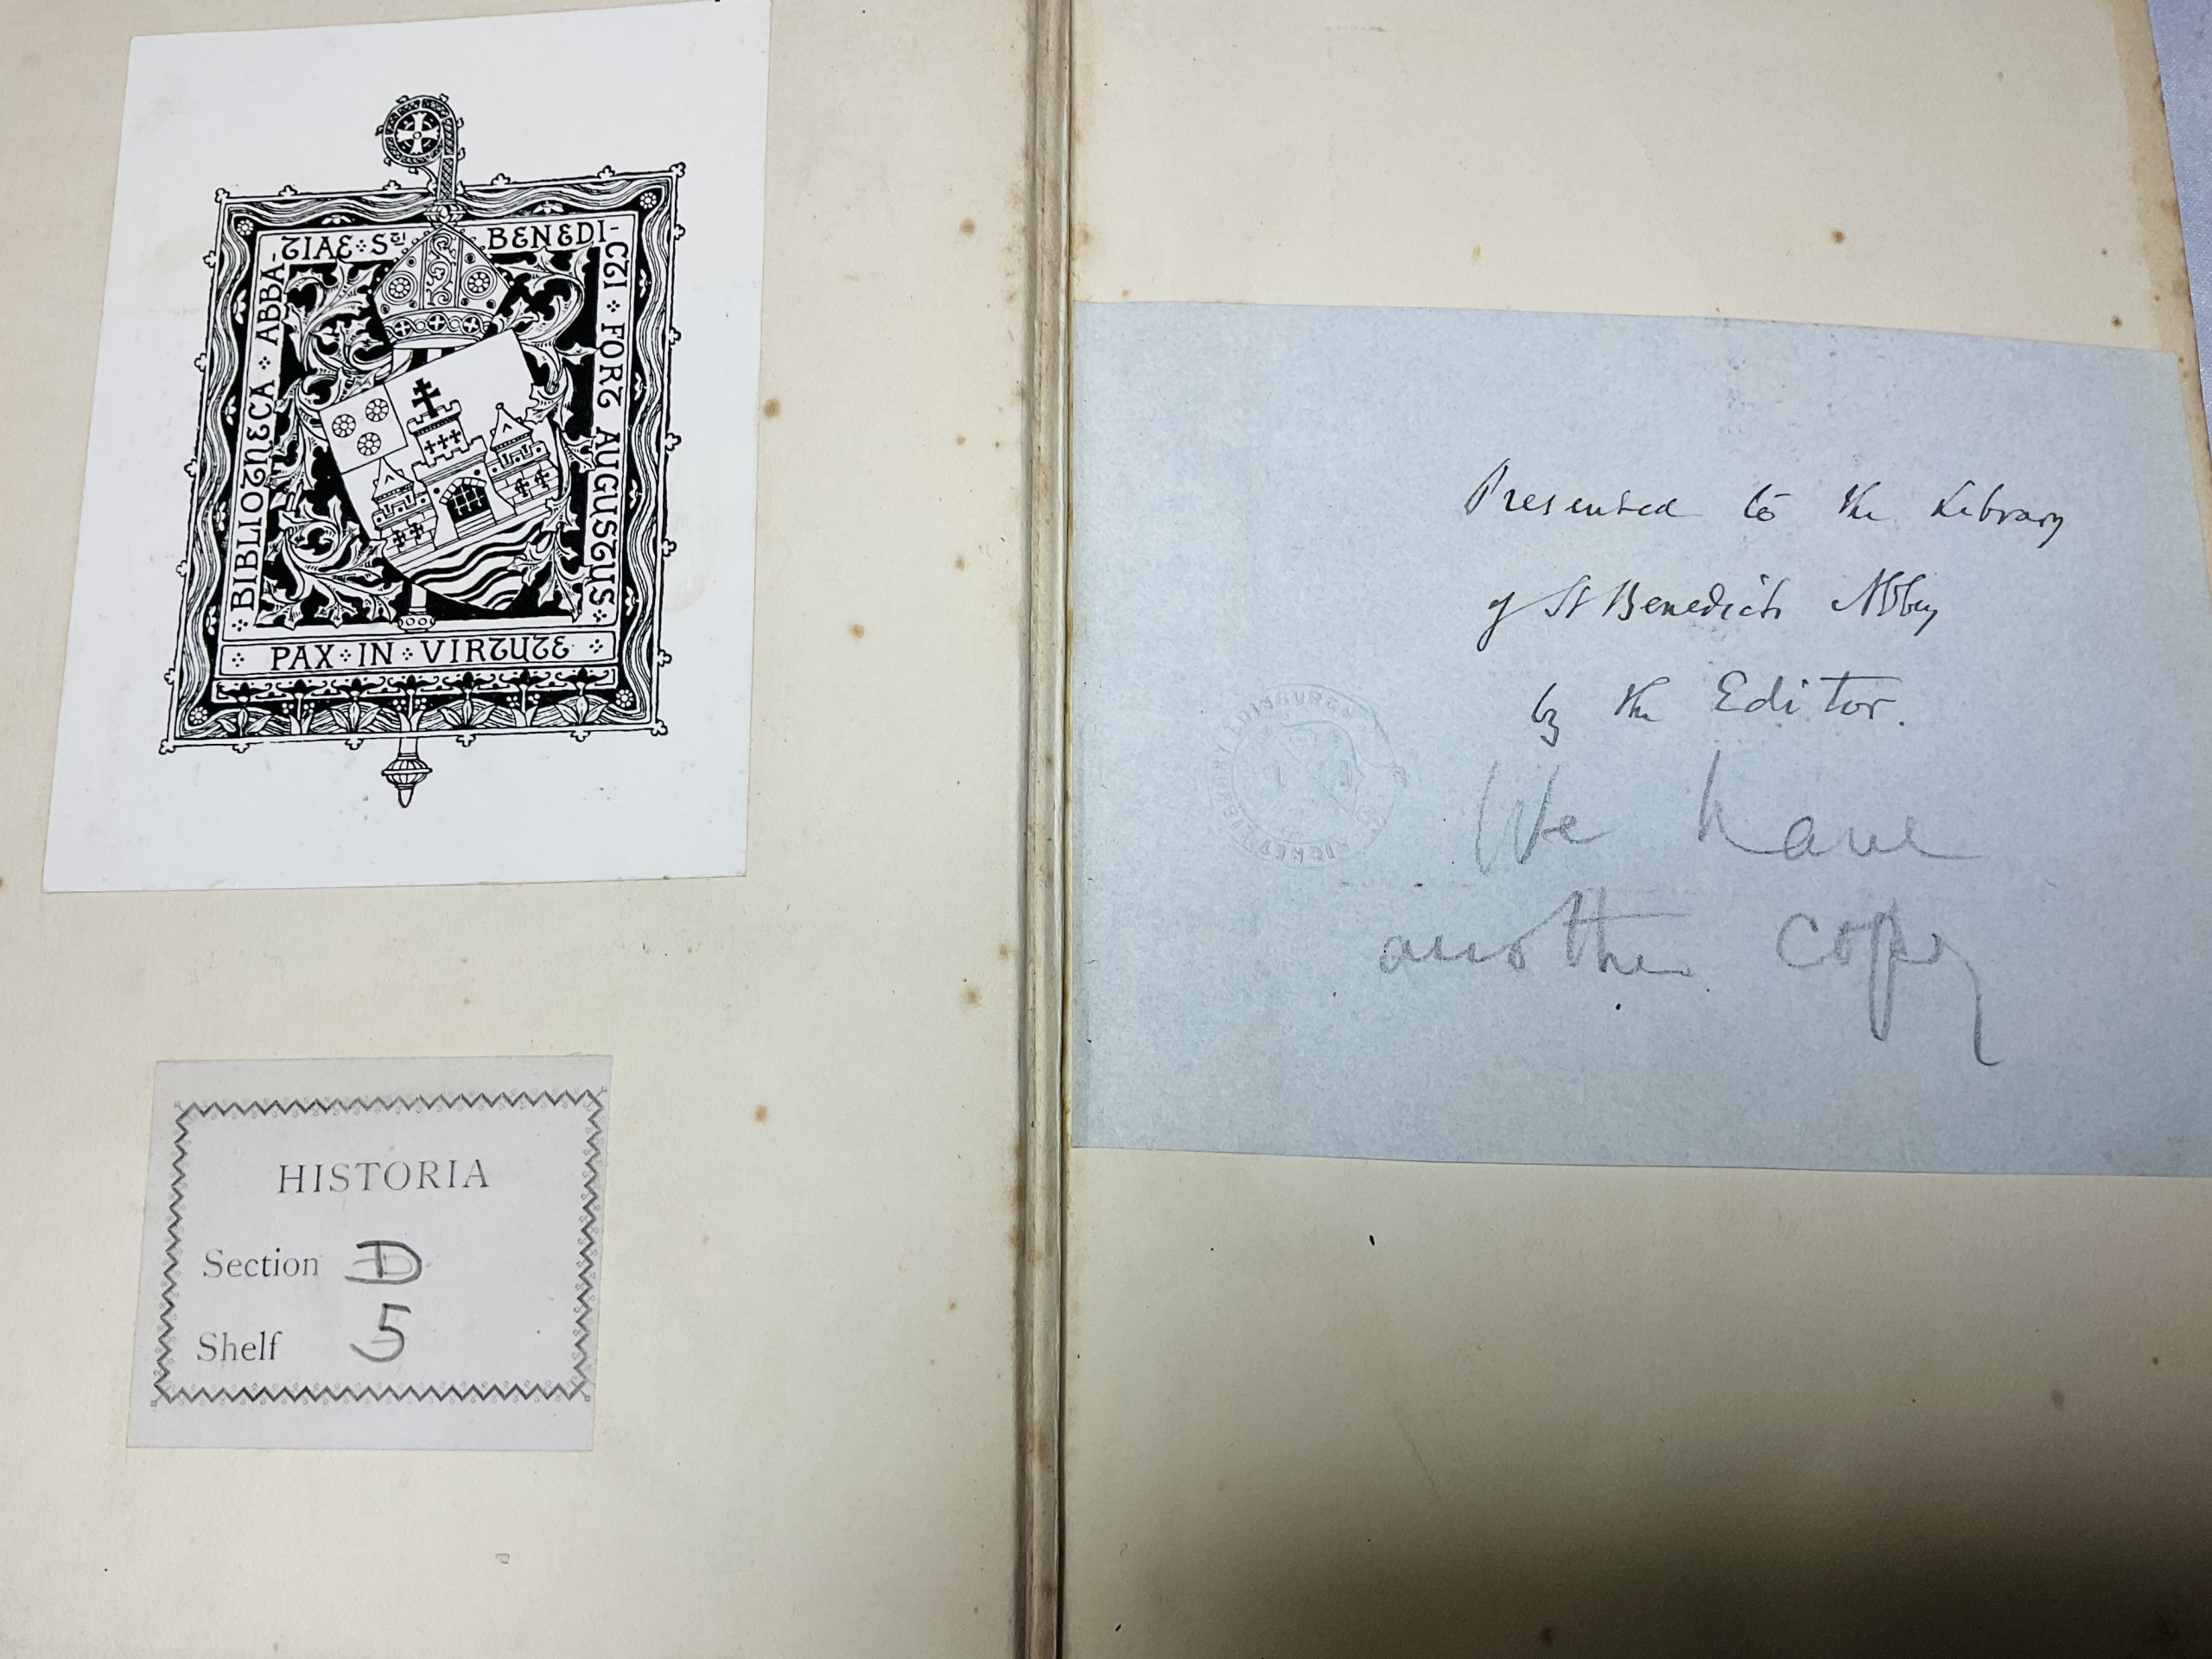 BIBLIOTHECA · ABBA-
TIAE · Sti BENEDI-
CTI · FORT AUGUSTUS
PAX · IN · VIRTUTE
HISTORIA
Section D
Shelf 5
Presented to the Library
of St Benedicts Abbey
by the Editor.
We have
another copy
EDINBURGH
SIGNET LIBRARY